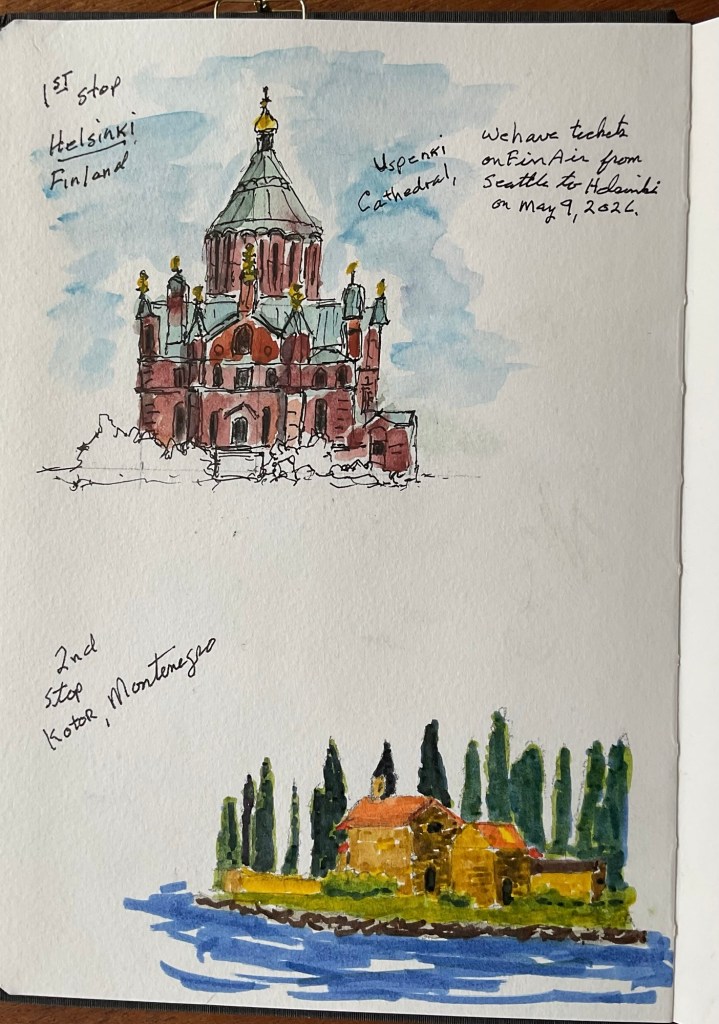 1ST stop
Helsinki
Finland
Uspenki
Cathedral,
We have tickets
on FinnAir from
Seattle to Helsinki
on May 9, 2026.
2nd
stop
Kotor, Montenegro